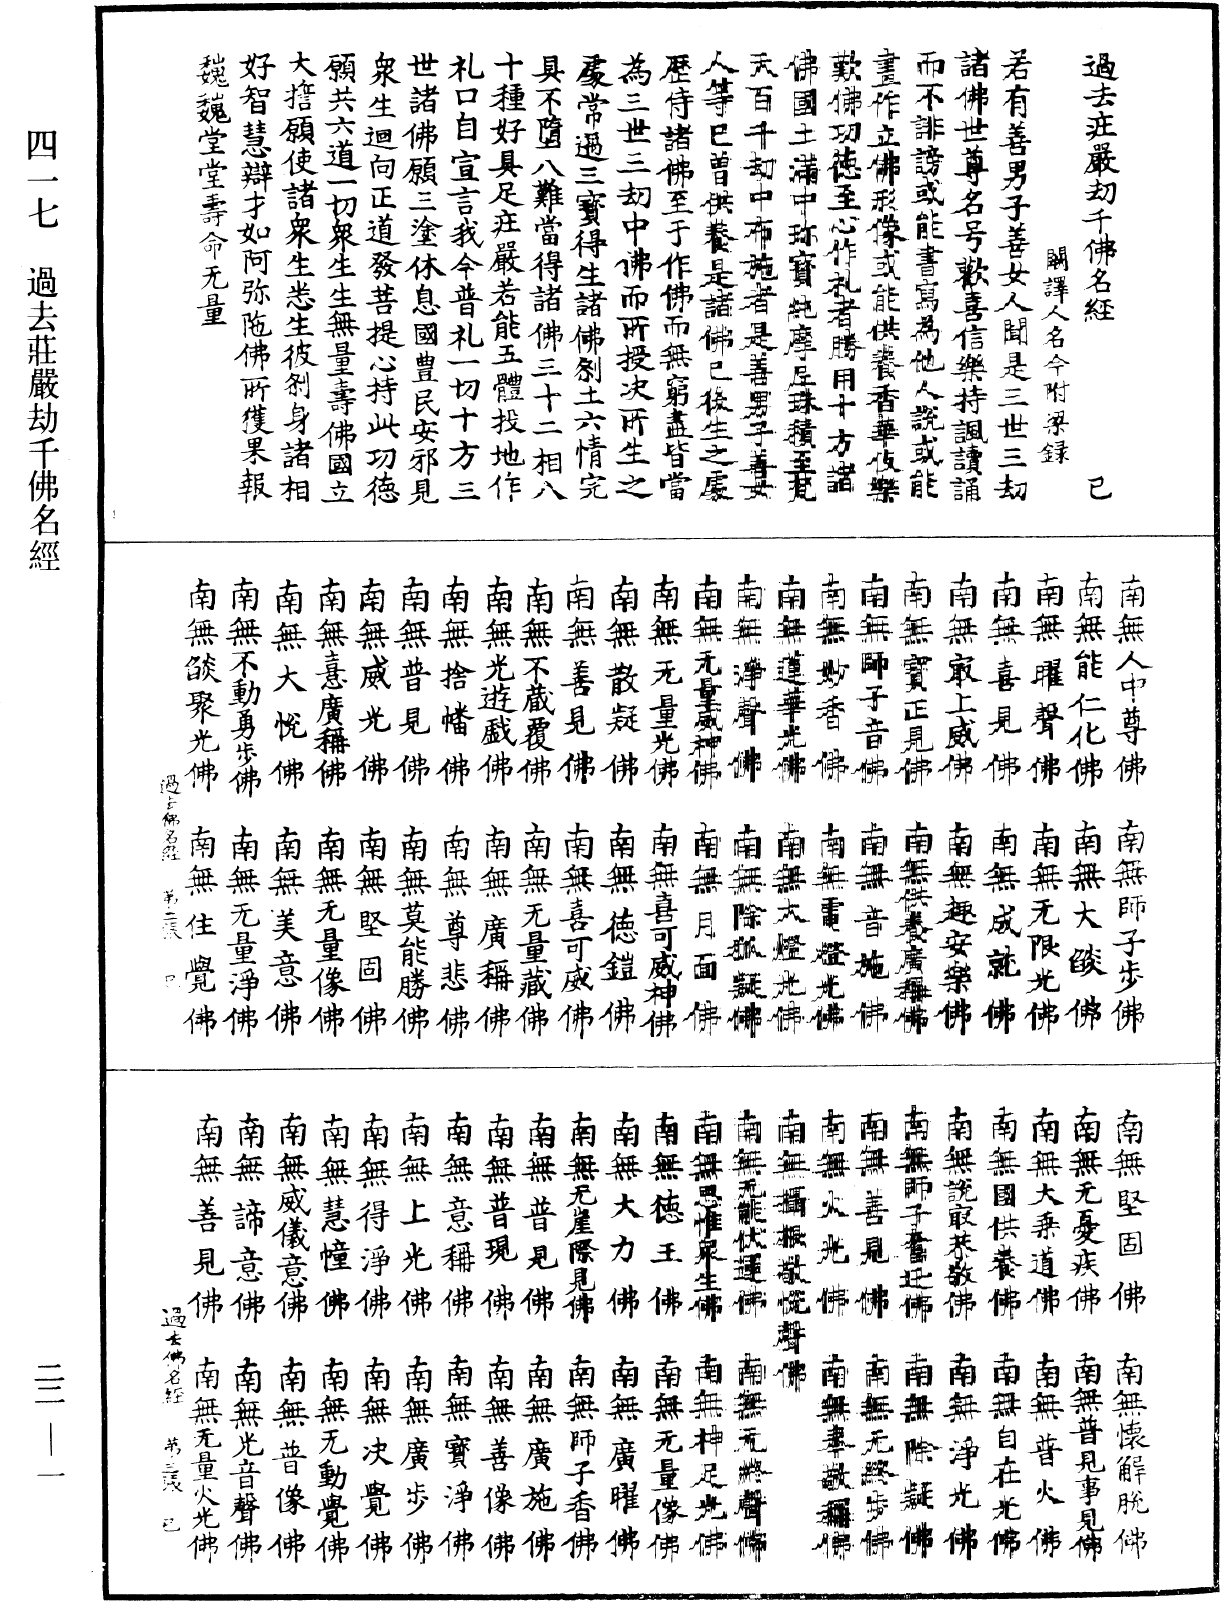 過去莊嚴劫千佛名經 己
闕譯人名今附梁録
若有善男子善女人聞是三世三劫
諸佛世尊名号歡喜信樂持諷讀誦
而不誹謗或能書寫為他人說或能
畫作立佛形像或能供養香華伎樂
歎佛功德至心作礼者勝用十方諸
佛國土滿中珎寶純摩尼珠積至梵
天百千劫中布施者是善男子善女
人等已曾供養是諸佛已後生之處
歷侍諸佛至于作佛而無窮盡皆當
為三世三劫中佛而所授决所生之
處常遇三寶得生諸佛剎土六情完
具不墮八難當得諸佛三十二相八
十種好具足莊嚴若能五體投地作
礼口自宣言我今普礼一切十方三
世諸佛願三塗休息國豊民安邪見
衆生迴向正道發菩提心持此功德
願共六道一切衆生生無量壽佛國立
大誓願使諸衆生悉生彼剎身諸相
好智慧辯才如阿弥陁佛所獲果報
巍巍堂堂壽命无量
南無人中尊佛 南無師子步佛
南無能仁化佛 南無大燄佛
南無曜聲佛 南無无限光佛
南無喜見佛 南無成就佛
南無㝡上威佛 南無趣安樂佛
南無寶正見佛 南無供養廣稱佛
南無師子音佛 南無音施佛
南無妙香佛 南無電燈光佛
南無蓮華光佛 南無大燈光佛
南無淨聲佛 南無除狐疑佛
南無无量威神佛 南無月面佛
南無无量光佛 南無喜可威神佛
南無散疑佛 南無德鎧佛
南無善見佛 南無喜可威佛
南無不蔵覆佛 南無无量藏佛
南無光遊戲佛 南無廣稱佛
南無捨幡佛 南無尊悲佛
南無普見佛 南無莫能勝佛
南無威光佛 南無堅固佛
南無意廣稱佛 南無无量像佛
南無大悅佛 南無美意佛
南無不動勇步佛 南無无量淨佛
南無燄聚光佛 南無住覺佛
過去佛名經 第二張 己
南無堅固佛 南無懷解脫佛
南無无憂疾佛 南無普見事見佛
南無大乘道佛 南無普火佛
南無國供養佛 南無自在光佛
南無說㝡恭敬佛 南無淨光佛
南無師子奮迅佛 南無除疑佛
南無善見佛 南無无終步佛
南無火光佛 南無奉敬稱佛
南無攝根敬悅聲佛
南無无能伏運佛 南無无終聲佛
南無思惟衆生佛 南無神足光佛
南無德王佛 南無无量像佛
南無大力佛 南無廣曜佛
南無无崖際見佛 南無師子香佛
南無普見佛 南無廣施佛
南無普現佛 南無善像佛
南無意稱佛 南無寶淨佛
南無上光佛 南無廣步佛
南無得淨佛 南無决覺佛
南無慧幢佛 南無无動覺佛
南無威儀意佛 南無普像佛
南無諦意佛 南無光音聲佛
南無善見佛 南無无量火光佛
過去佛名經 第三張 己
四一七 過去莊嚴劫千佛名經 二二 — 一